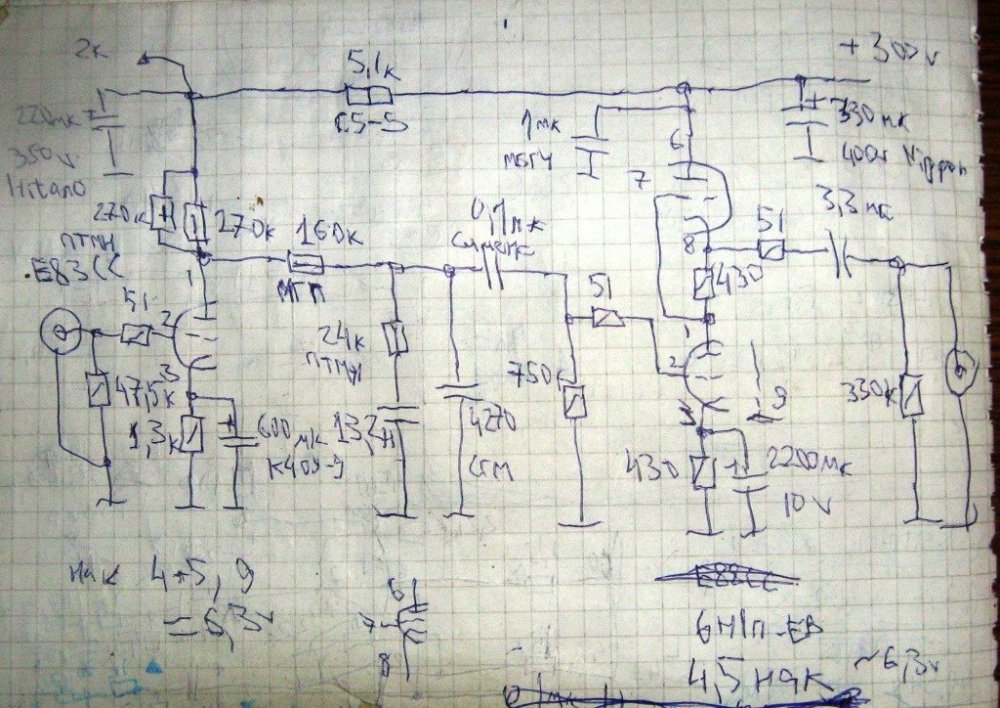 2к
5,1к
+300v
С5-5
220мк
350v
Hitano
1мк
МБГЧ
330мк
400v Nippon
6
7
8
270к
270к
ПТМН
E83CC
160к
МГП
0,1мк
51
3,3мк
430
1
51
2
3
47,5к
1,3к
600мк
24к
ПТМН
13,2н
4270
СГМ
750к
51
1
2
3
9
430
2200мк
10v
330к
нак 4+5, 9
=6,3v
6
7
8
E88CC
6Н1П-ЕВ
4,5 нак ~6,3v